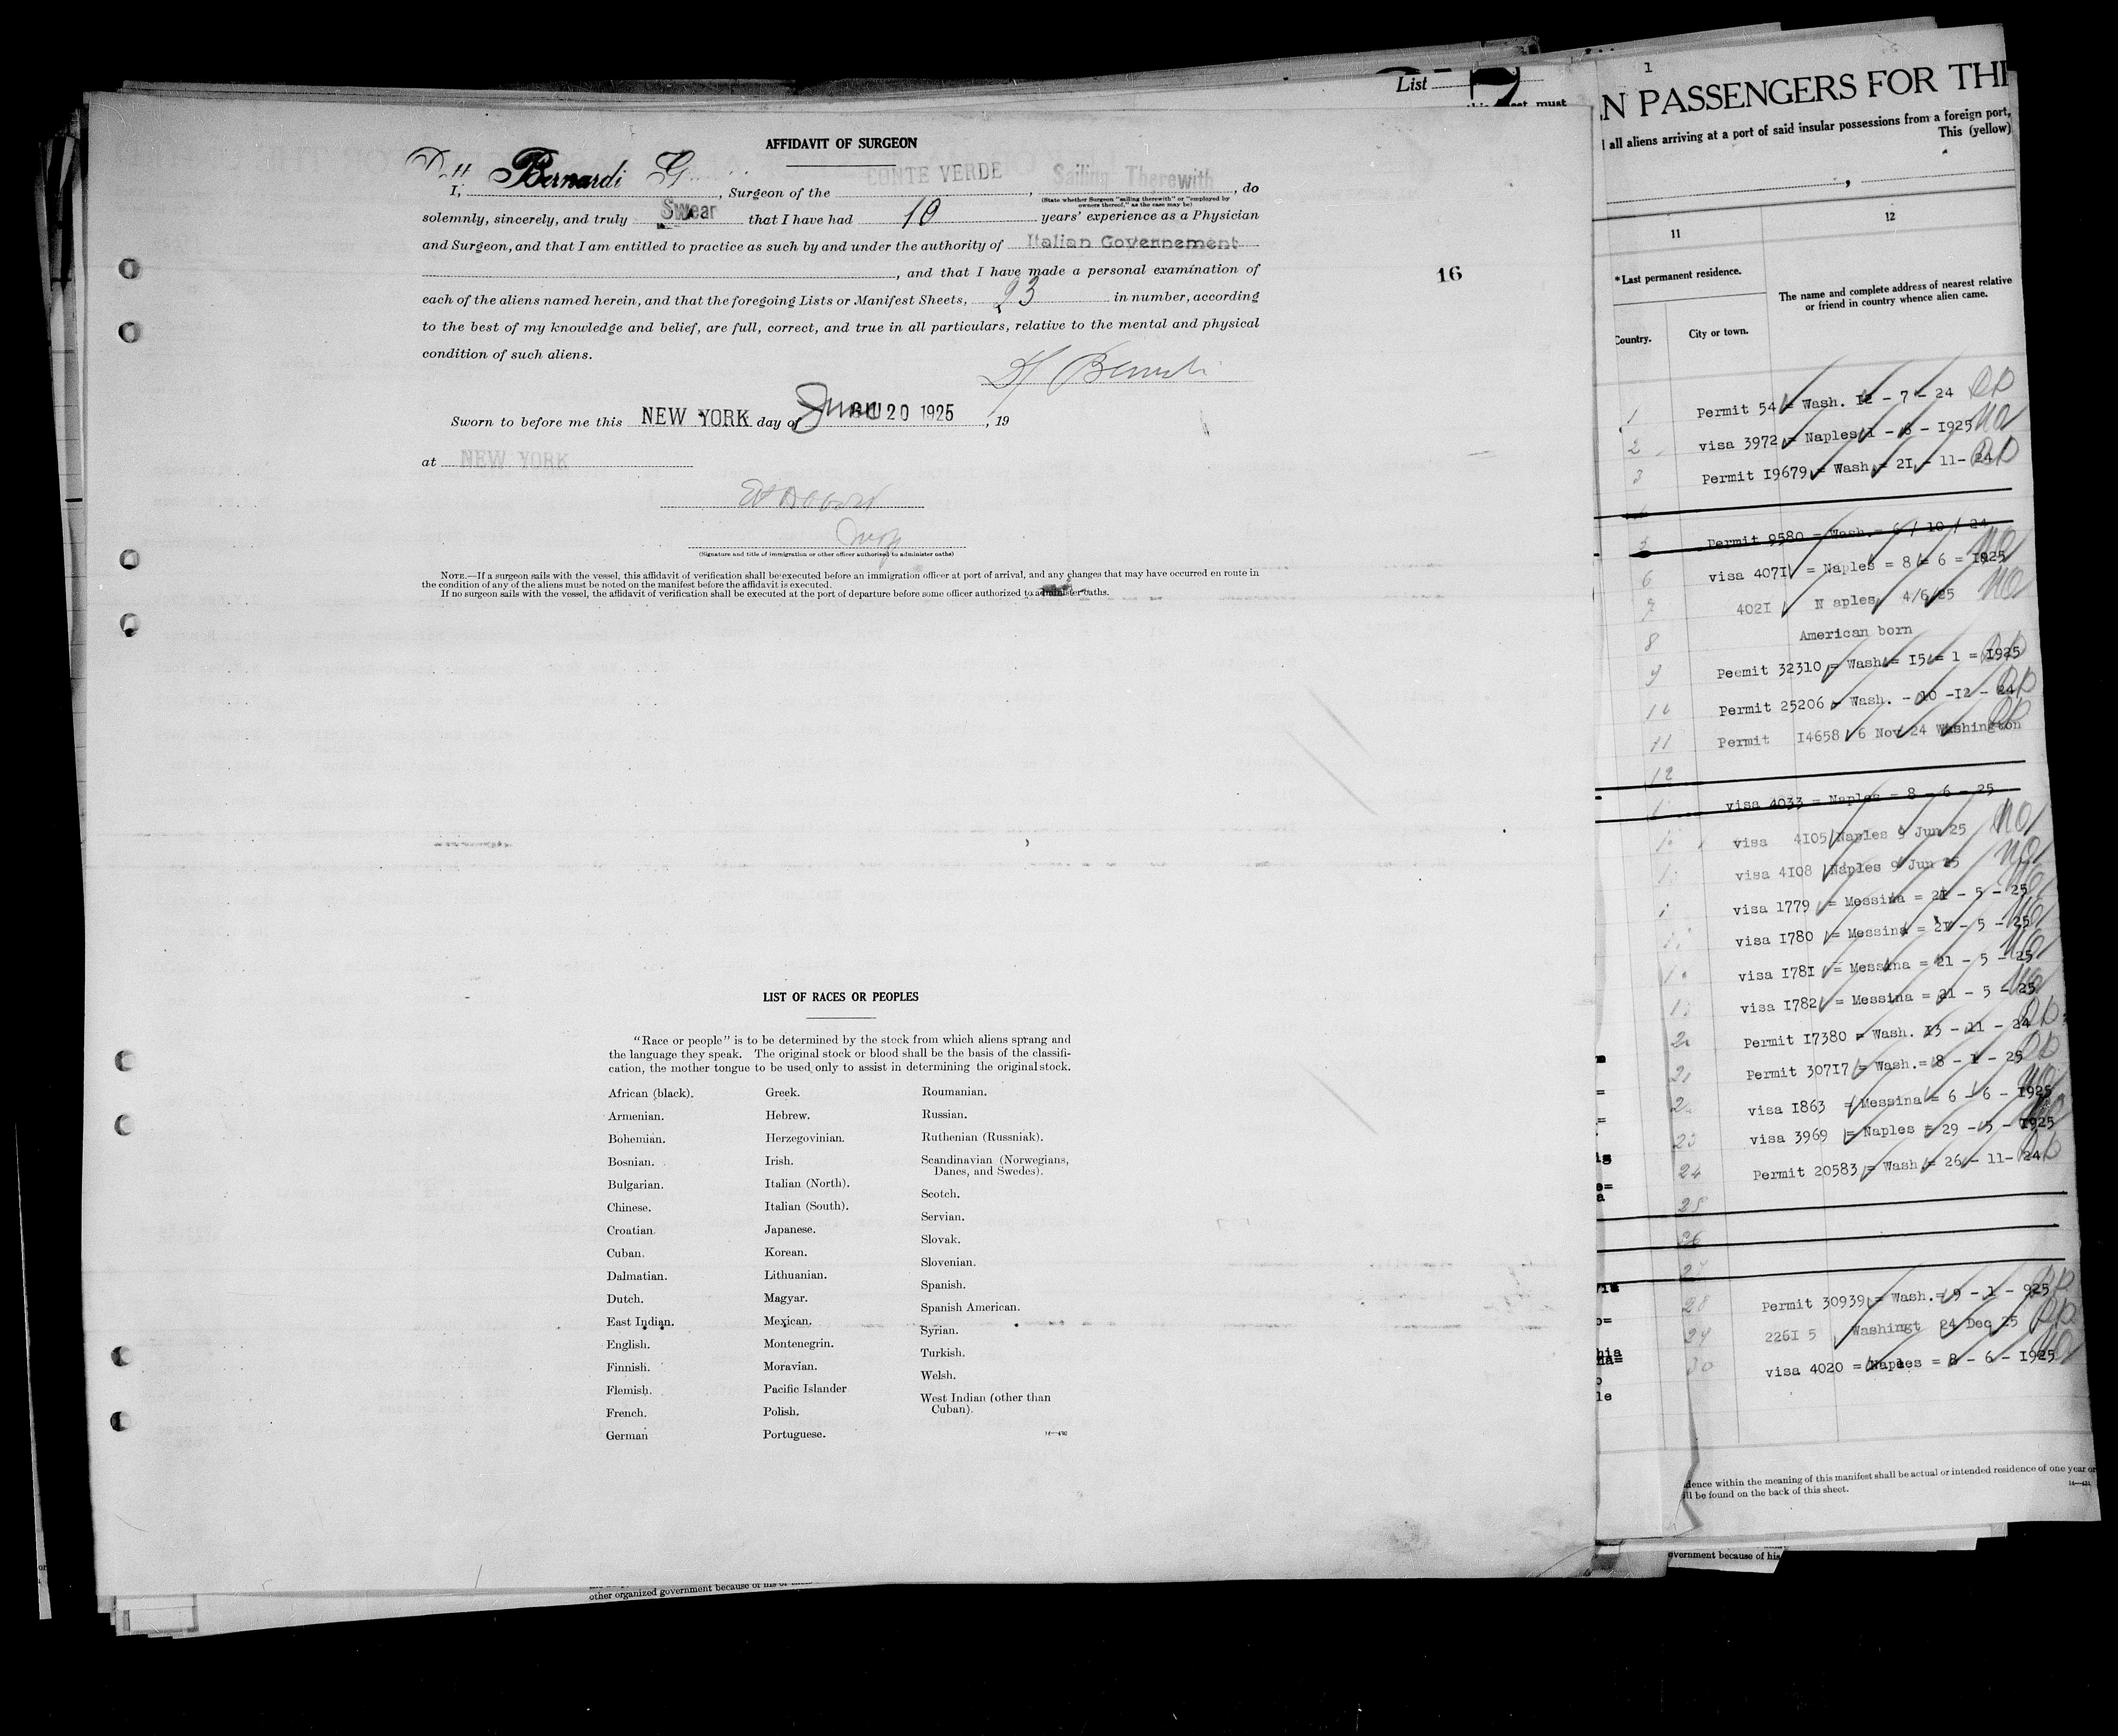 List
AFFIDAVIT OF SURGEON
I, Dott Bernardi G, Surgeon of the CONTE VERDE, Sailing Therewith, do
(State whether Surgeon "sailing therewith" or "employed by
owners thereof," as the case may be)
solemnly, sincerely, and truly Swear that I have had 10 years' experience as a Physician
and Surgeon, and that I am entitled to practice as such by and under the authority of Italian Governement
, and that I have made a personal examination of
each of the aliens named herein, and that the foregoing Lists or Manifest Sheets, 23 in number, according
to the best of my knowledge and belief, are full, correct, and true in all particulars, relative to the mental and physical
condition of such aliens.
16
Sworn to before me this NEW YORK day of June 20 1925, 19
at NEW YORK
(Signature and title of immigration or other officer authorized to administer oaths)
NOTE.—If a surgeon sails with the vessel, this affidavit of verification shall be executed before an immigration officer at port of arrival, and any changes that may have occurred en route in
the condition of any of the aliens must be noted on the manifest before the affidavit is executed.
If no surgeon sails with the vessel, the affidavit of verification shall be executed at the port of departure before some officer authorized to administer oaths.
LIST OF RACES OR PEOPLES
"Race or people" is to be determined by the stock from which aliens sprang and
the language they speak. The original stock or blood shall be the basis of the classifi-
cation, the mother tongue to be used only to assist in determining the original stock.
African (black).
Armenian.
Bohemian.
Bosnian.
Bulgarian.
Chinese.
Croatian.
Cuban.
Dalmatian.
Dutch.
East Indian.
English.
Finnish.
Flemish.
French.
German
Greek.
Hebrew.
Herzegovinian.
Irish.
Italian (North).
Italian (South).
Japanese.
Korean.
Lithuanian.
Magyar.
Mexican.
Montenegrin.
Moravian.
Pacific Islander
Polish.
Portuguese.
Roumanian.
Russian.
Ruthenian (Russniak).
Scandinavian (Norwegians,
Danes, and Swedes).
Scotch.
Servian.
Slovak.
Slovenian.
Spanish.
Spanish American.
Syrian.
Turkish.
Welsh.
West Indian (other than
Cuban).
other organized government because of his
1
N PASSENGERS FOR THE
all aliens arriving at a port of said insular possessions from a foreign port,
This (yellow)
11
12
*Last permanent residence.
The name and complete address of nearest relative
or friend in country whence alien came.
Country.
City or town.
1 Permit 54 = Wash. 12 - 7 - 24
2 visa 3972 = Naples 1 - 6 - 1925 no
3 Permit I9679 = Wash = 2I - 11- 24
5 Permit 9580 - Wash. = 6 / 10 / 24
6 visa 407I = Naples = 8 = 6 = 1925 no
7 402I N aples 4/6/25 no
8 American born
9 Peemit 32310 = Wash = I5 = 1 = I925
10 Permit 25206 - Wash. - 10 -I2 - 24
11 Permit I4658 6 Nov 24 Washington
12
visa 4033 = Naples = 8 - 6 - 25
visa 4I05 Naples 9 Jun 25 no
visa 4I08 Naples 9 Jun 25 no
visa 1779 = Messina = 2I - 5 - 25
visa I780 = Messina = 2I - 5 - 25
visa I78I = Messina = 21 - 5 - 25
visa I782 = Messina = 21 - 5 - 25
Permit I7380 = Wash. I3 - 11 - 24
21 Permit 30717 = Wash.= 8 - 1 - 25
visa I863 = Messina = 6 - 6 - I925
23 visa 3969 = Naples = 29 - 5 - I925
24 Permit 20583 = Wash = 26 - 11- 24
25
26
27
28 Permit 30939 = Wash.= 9 - 1 - 925
29 226I 5 Washingt 24 Dec 25
30 visa 4020 = Naples = 8 - 6 - I925
dence within the meaning of this manifest shall be actual or intended residence of one year or
ill be found on the back of this sheet.
overnment because of his